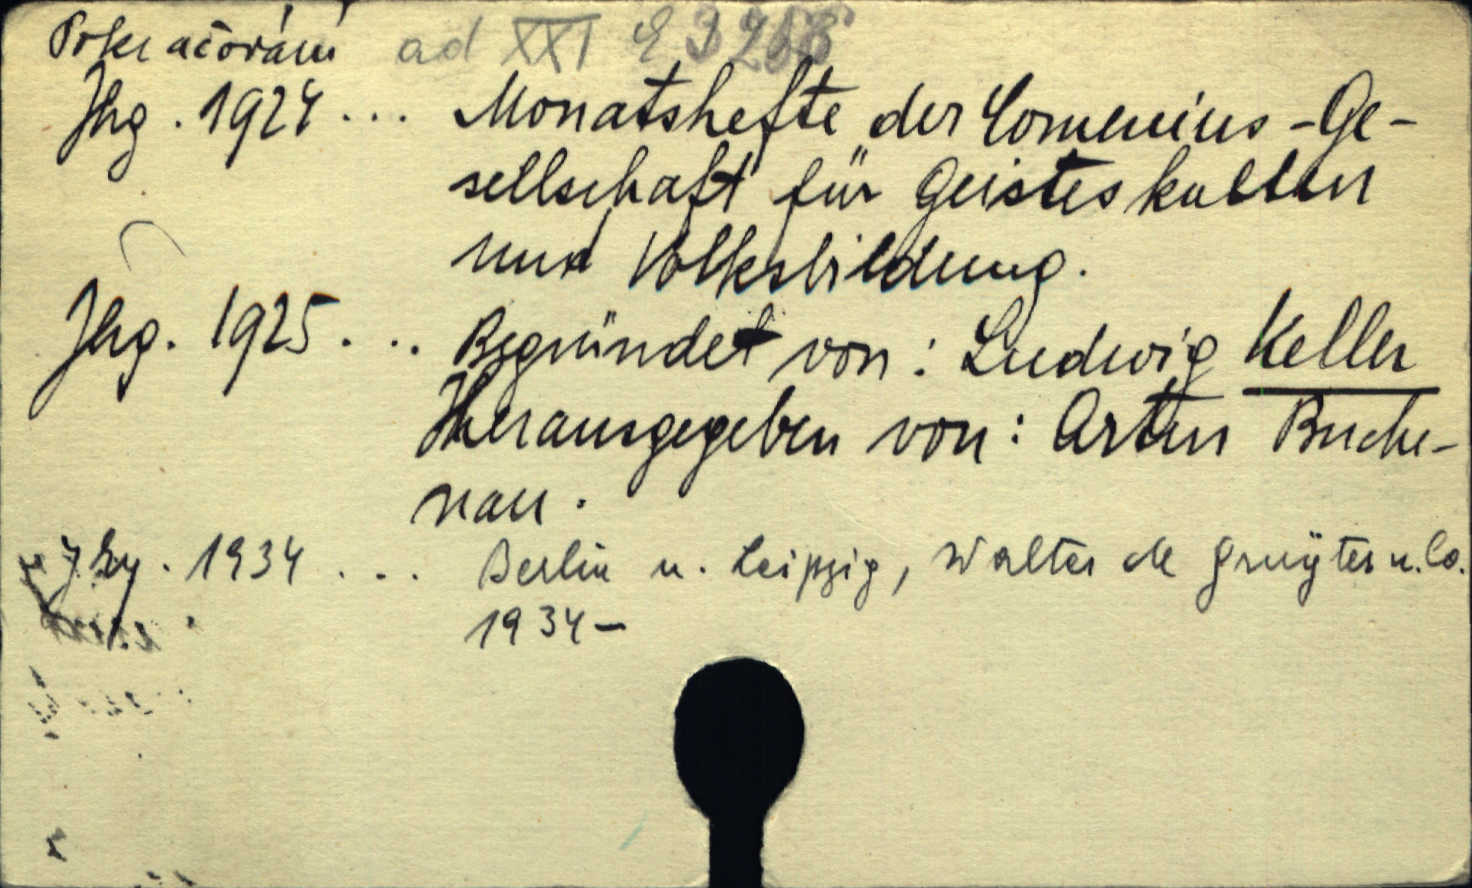 Pokračování ad XXI E 3258
Jhg. 1924 ... Monatshefte der Comenius-Ge-
sellschaft für Geisteskultur
und Volksbildung.
Jhg. 1925 ... Begründet von: Ludwig Keller
Herausgegeben von: Artur Buche-
nau.
Jhg. 1934 ... Berlin u. Leipzig, Walter de Gruÿter u. Co.
1934-